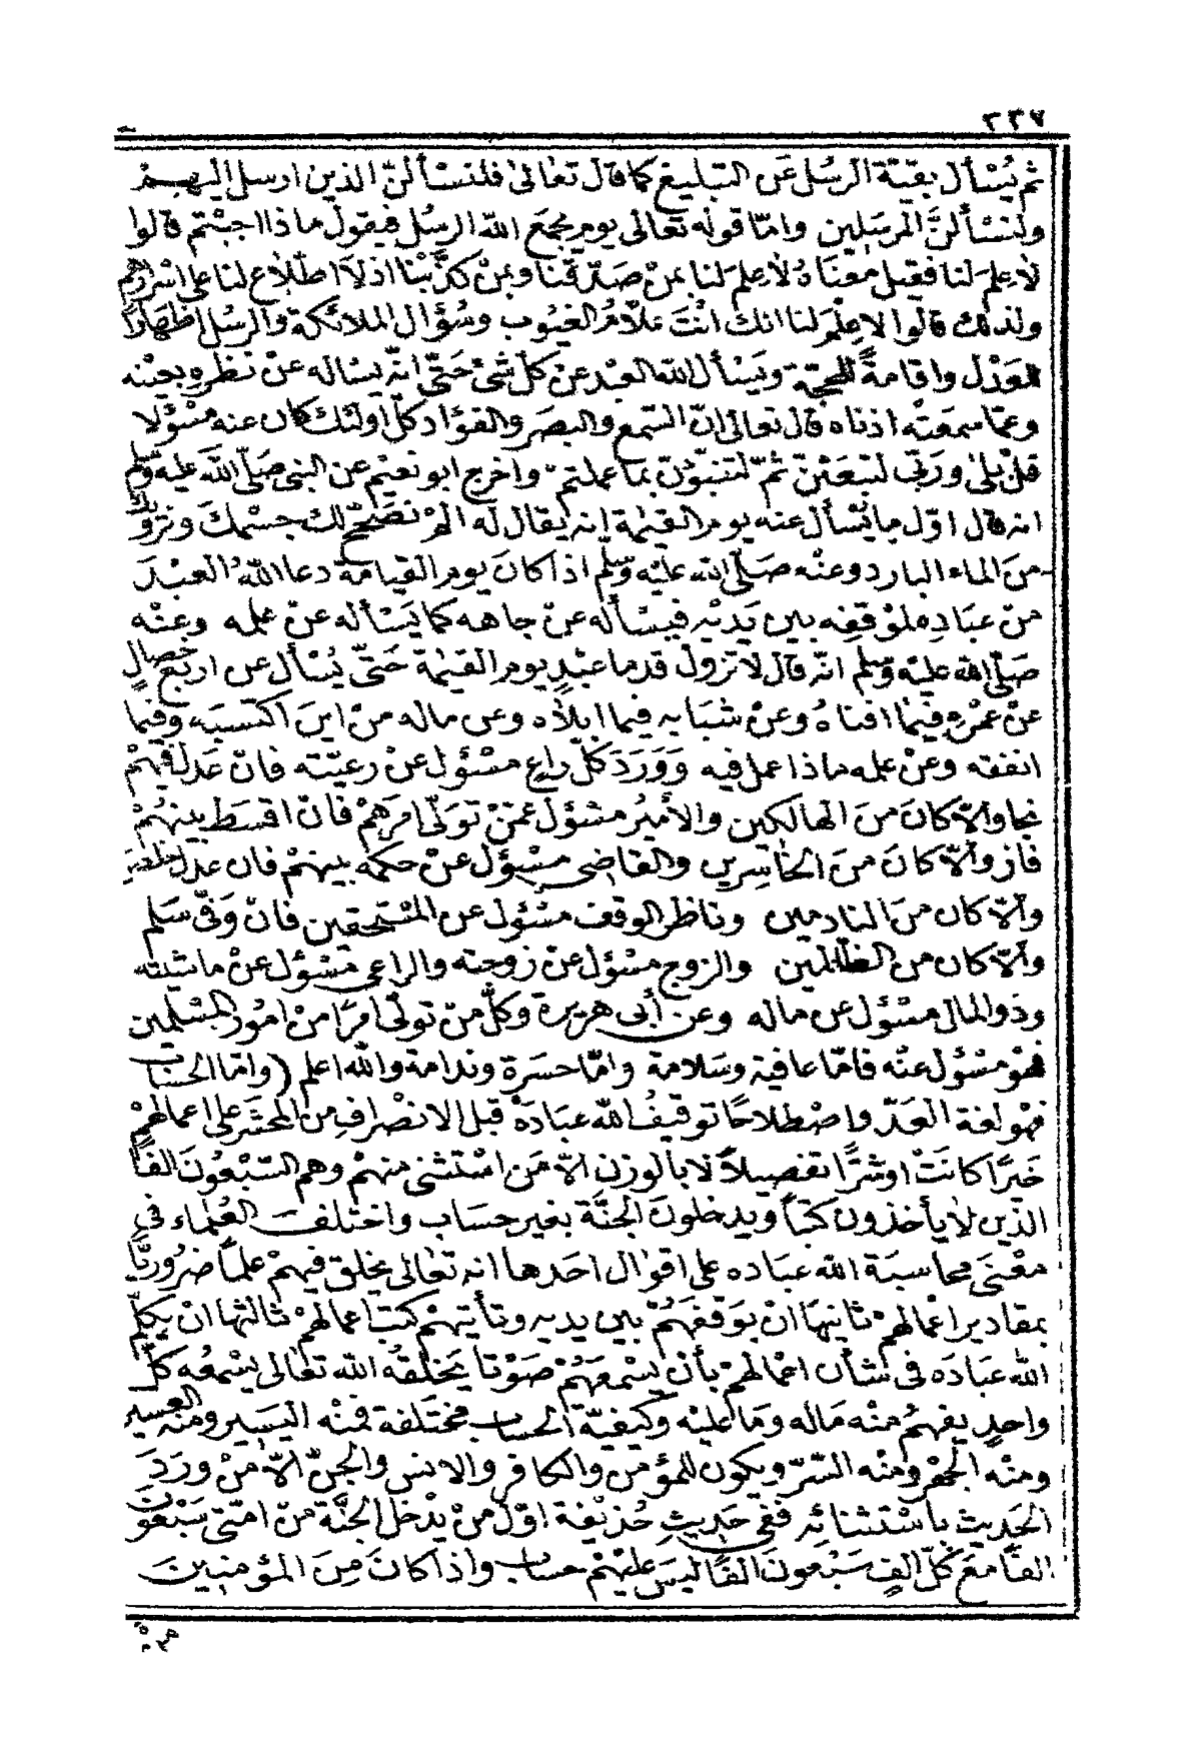 ٢٣٧
ثم يُسْأل بقيّة الرسُل عَن التبليغ كما قال تعَالىٰ فلنسْألنّ الذين ارسل اليهمْ
ولنسْألنَّ المرسَلين وامّا قوله تعَالى يوم يجمَع الله الرسُل فيقول ماذا اجبْتم قالوا
لا عِلمَ لنا فقيل معْنَاهُ لا عِلمَ لنا بمنْ صَدّقنا وبمنْ كذَّبْنا اذ لا اطّلاع لنا على اسْرارهم
ولذلك قالوا لا عِلْمَ لنا انك انْتَ علّامُ الغيُوب وسُؤال الملائكة والرسُل اظهَارًا
للعَدْل واقامةً للحجّة ويَسْأل الله العَبْد عنْ كلّ شئْ حَتّى انّه يسْاله عنْ نظرهِ بعيْنه
وعمّا سمعَتْه اذناه قال تعالى انّ السّمع والبصَر والفؤاد كلّ اولئك كان عنه مسْؤلا
قلْ بلىٰ ورَبّى لتبعَثنّ ثمّ لتنبّؤنّ بما عملتم واخرج ابو نعيْم عن النبى صَلّى الله عليْه وسّلم
انه قال اوّل ما يُسْأل عنه يوم القيٰمة انه يقال له المْ نصَحّ لك جسْمك ونروّك
منَ الماء البارد وعنْه صَلّى الله عليْه وسّلم اذا كانَ يوم القيامة دعا اللهُ العبْدَ
منْ عبَادِه لموْقفِه بين يَدَيْه فيسْأله عنْ جاهه كما يَسْأله عنْ عمله وعنْه
صَلّى الله عليْه وسّلم انّه قال لا تزول قدما عبْدٍ يوم القيٰمة حَتّى يُسْأل عن اربَع خصالٍ
عنْ عمْرهِ فيمَا افناهُ وعنْ شبَابه فيما ابلاه وعن ماله منْ اينَ اكتسَبَه وفيما
انفقه وعنْ علمه ماذا عمل فيه وَوَرَدَ كلّ راعٍ مسْؤل عنْ رعيّته فانْ عَدل فيهمْ
نجا والّا كانَ منَ الهالكين والأميْرُ مسْؤل عمّنْ تولّى امرَهمْ فانْ اقسَط بينهُمْ
فاز والّا كانَ منَ الخاسِرين والقاضى مسْؤل عنْ حكمه بينهمْ فان عدل
والّا كان منَ النادمين وناظر الوقف مسْؤل عن المسْتحقين فانْ وَفّى سَلم
والّا كان من الظالمين والزوج مسْؤل عنْ زوجته والراعى مسْؤل عنْ ماشيته
وذو المال مسْؤل عن ماله وعن أبى هريرة وكلّ منْ تولّى امرًا منْ امُور المسْلمين
فهوْ مسْؤل عنْه فامّا عافية وسَلامة وامّا حسَرة وندامة والله اعلم (وامّا الحسَاب
فهْو لغة العَدّ واصْطلاحًا توقيفُ الله عبَادهْ قبل الانصْرافِ من المحْشَر على اعمالهمْ
خَيرًا كانَتْ او شرًّا تفصيلاً لا بالوزنِ الّا مَن اسْتثنى منهمْ وهم السّبْعُونَ الفًا
الذين لا يأخذون كتبًا ويدخلون الجنّة بغير حسَاب واختلف العُلماء فى
معْنَى محاسَبَة الله عبَاده على اقوال احَدها انه تعَالى يخلق فيهمْ علمًا ضرُوريًّا
بمقادير اعْمالهمْ ثانيهَا انْ يوَقفَهُمْ بين يديه وتأتيهمْ كتب اعمالهمْ ثالثها انْ يكلّم
الله عبَادَه فى شأن اعْمالهمْ بأنْ يسْمعَهُمْ صَوْتا يَخْلقهُ الله تعَالى يسْمعُه كلّ
واحدٍ يفهمُ منْه مَاله ومَا عليْه وكيفيّة الحسَاب مختَلفة فمنْه اليسَير ومنْه العَسير
ومنْه الجَهْر ومنْه السّرّ ويكون للمؤمن والكافر والانس والجنّ الّا منْ ورَدَ
الحَديثِ باسْتثنائِه ففى حَديثِ حُذيْفة اوّل منْ يدْخل الجنّة منْ امّتى سَبْعُونَ
الفًا معَ كلّ الفٍ سَبْعونَ الفًا ليسَ عليْهمْ حسَاب واذا كانَ مِنَ المؤمنينَ